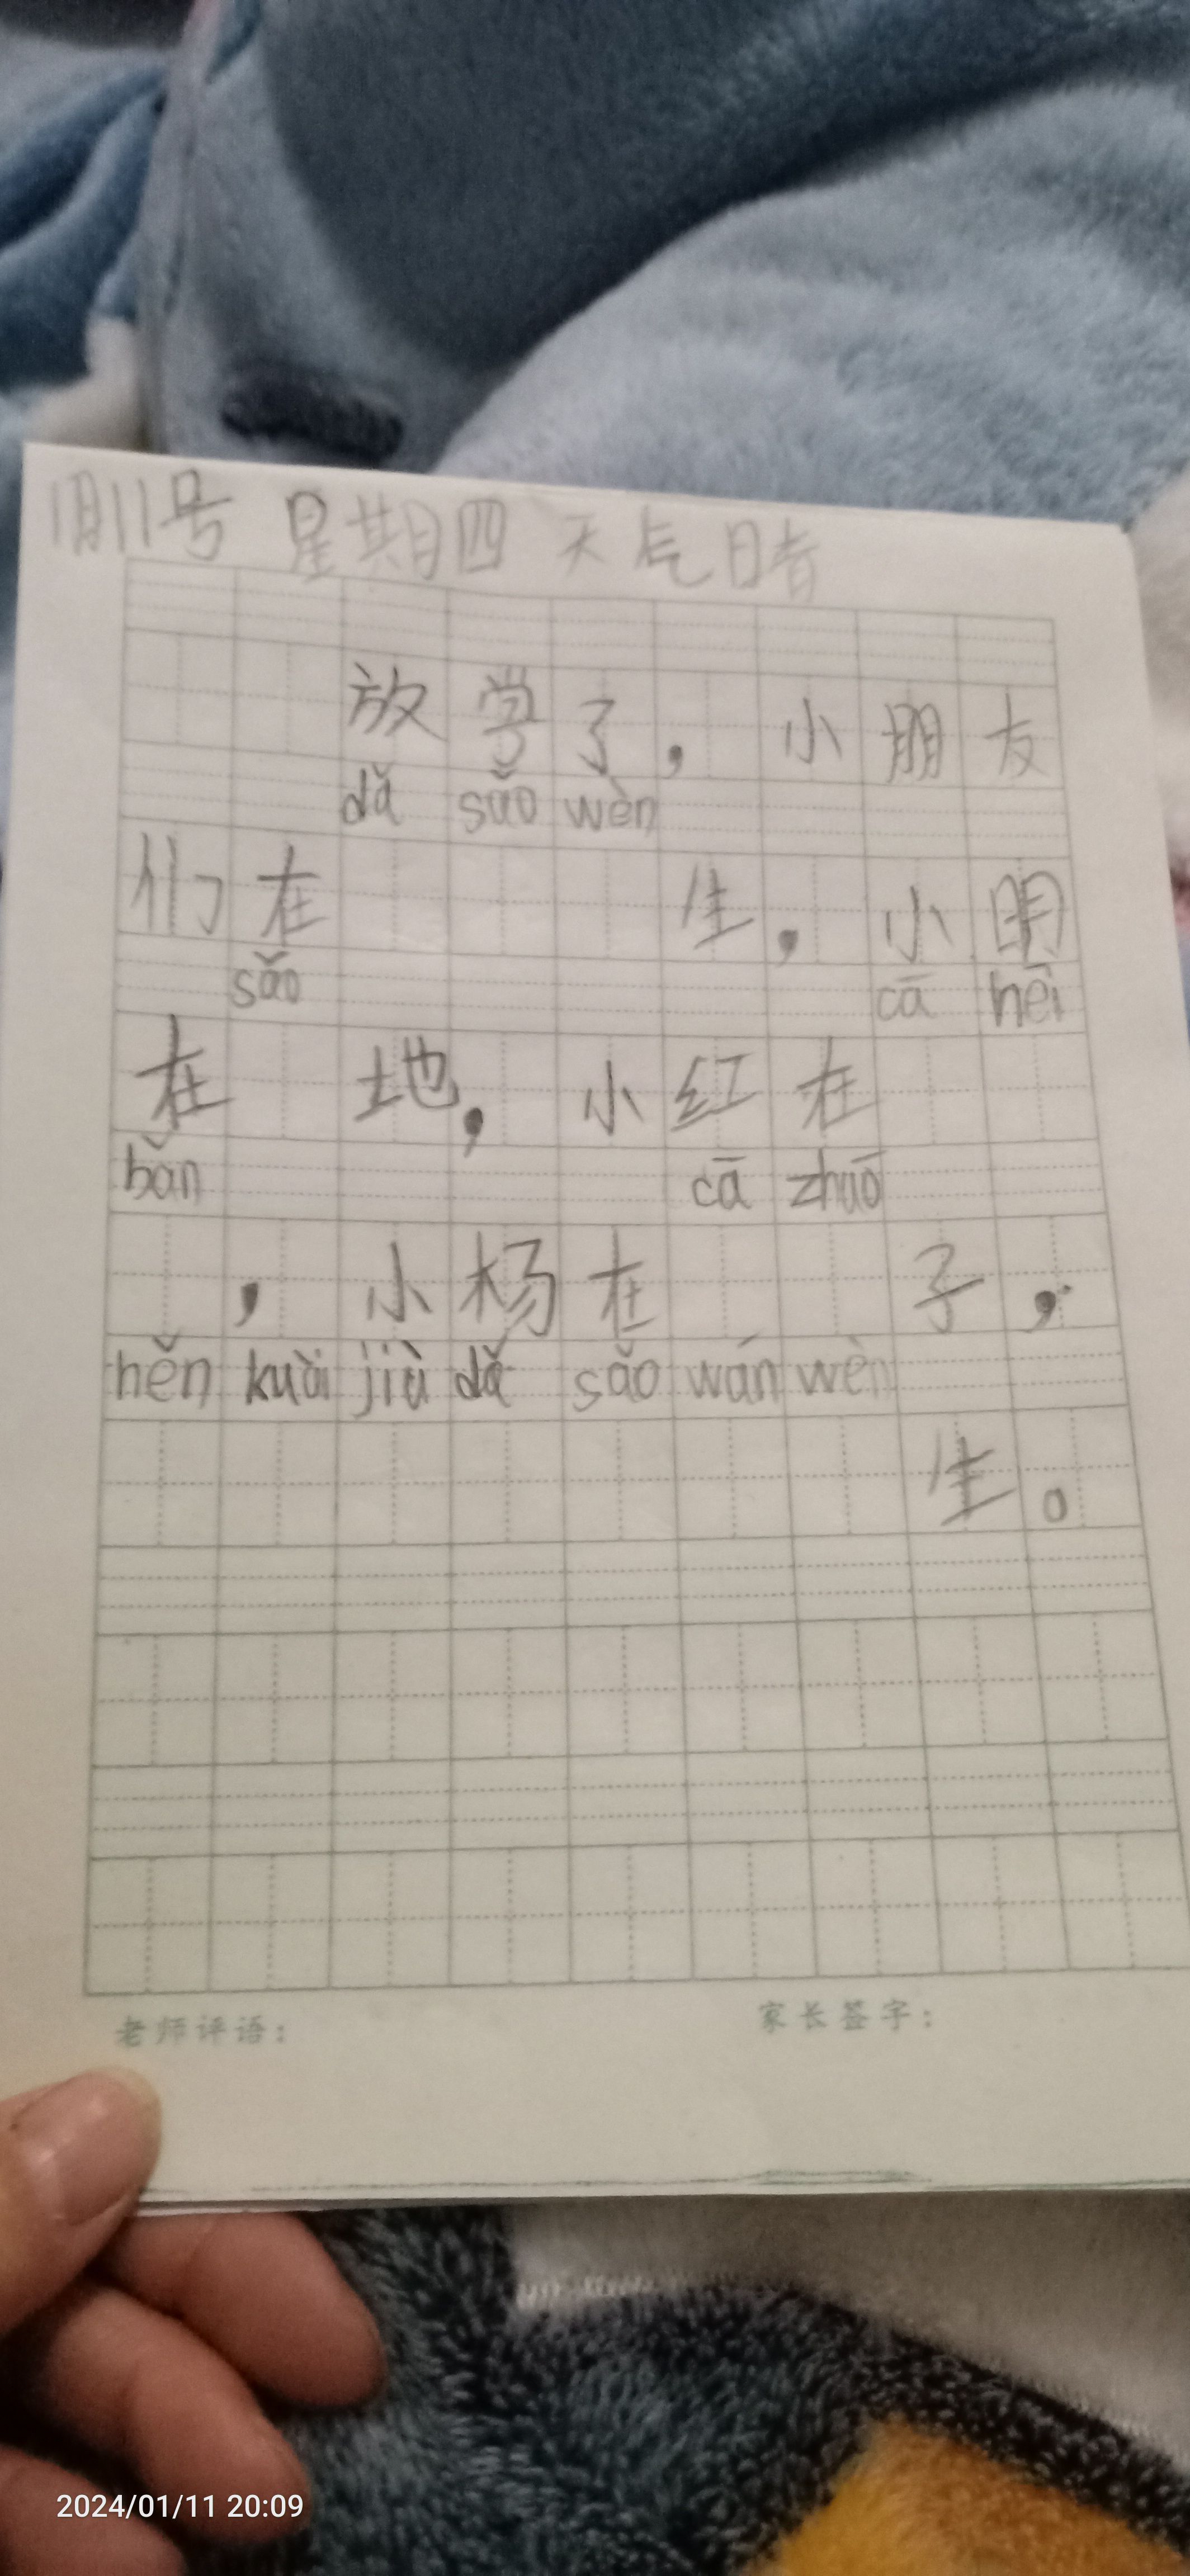 1月11号 星期四 天气晴
放学了，小朋友
dǎ sǎo wèn
们在 生，小明
sǎo cā hēi
在 地，小红在
bǎn cā zhuō
，小杨在 子，
hěn kuài jiù dǎ sǎo wán wèn
生。
老师评语：
家长签字：
2024/01/11 20:09